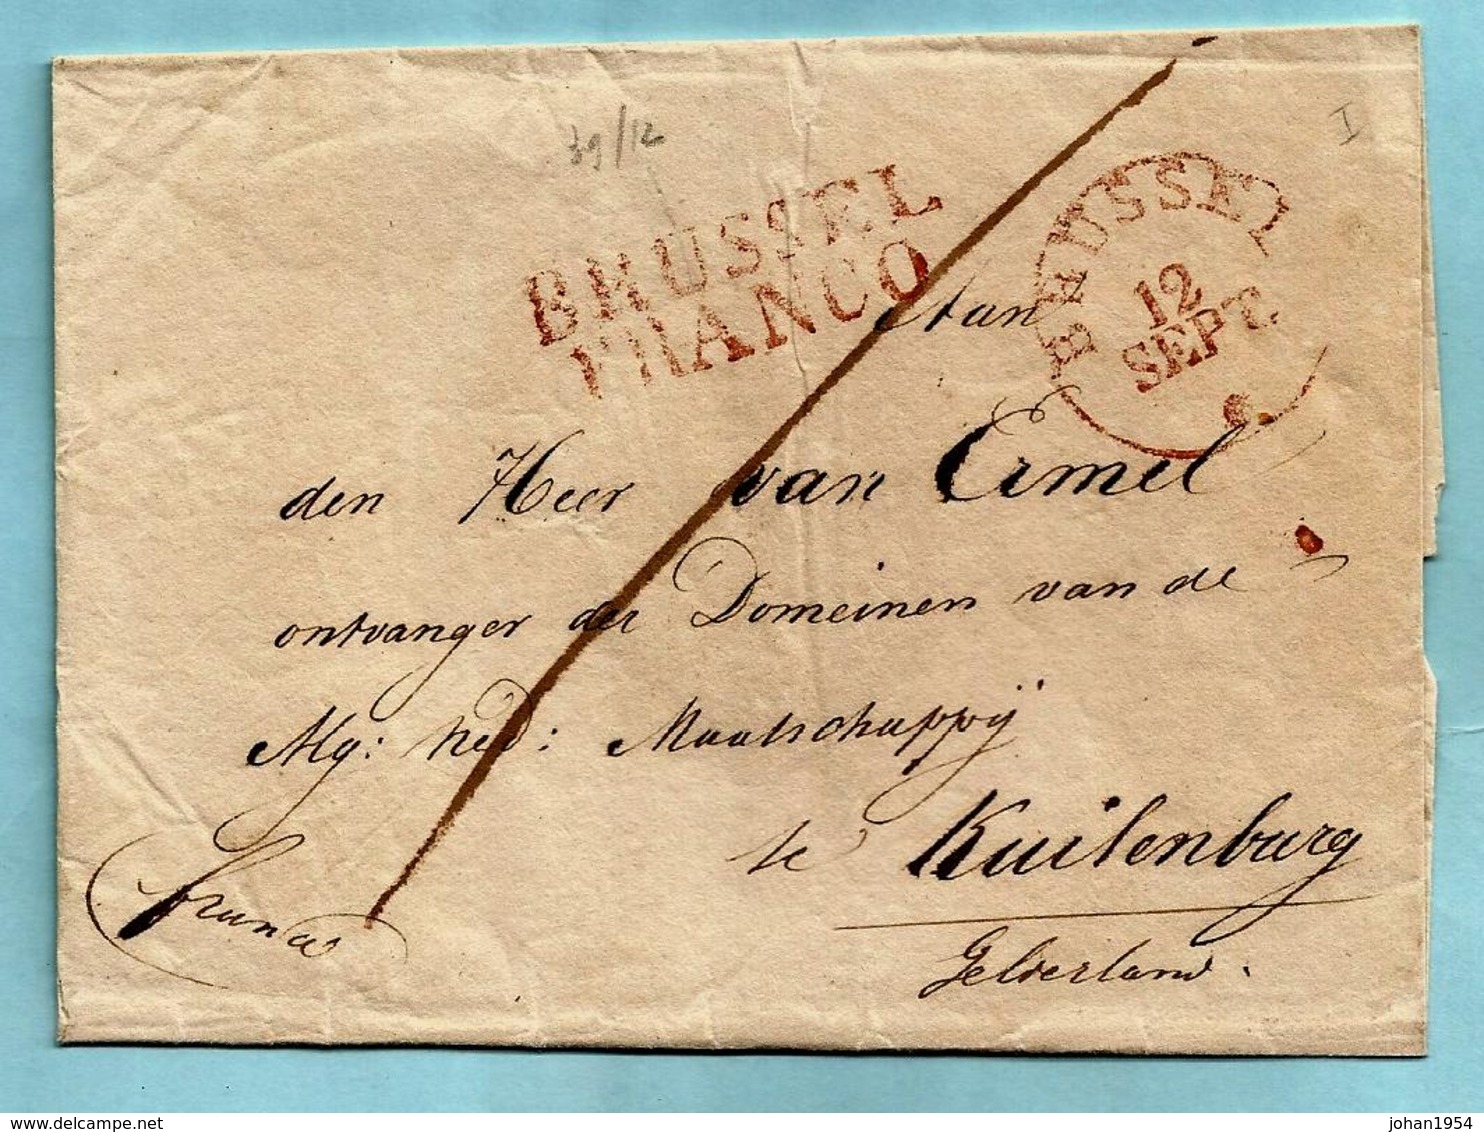 39/12
I
BRUSSEL
FRANCO
BRUSSEL
12
SEPT.
Aan
den Heer van Ermel
ontvanger der Domeinen van de
Alg: Ned: Maatschappij
te Kuilenburg
franco
Gelderland.
johan1954